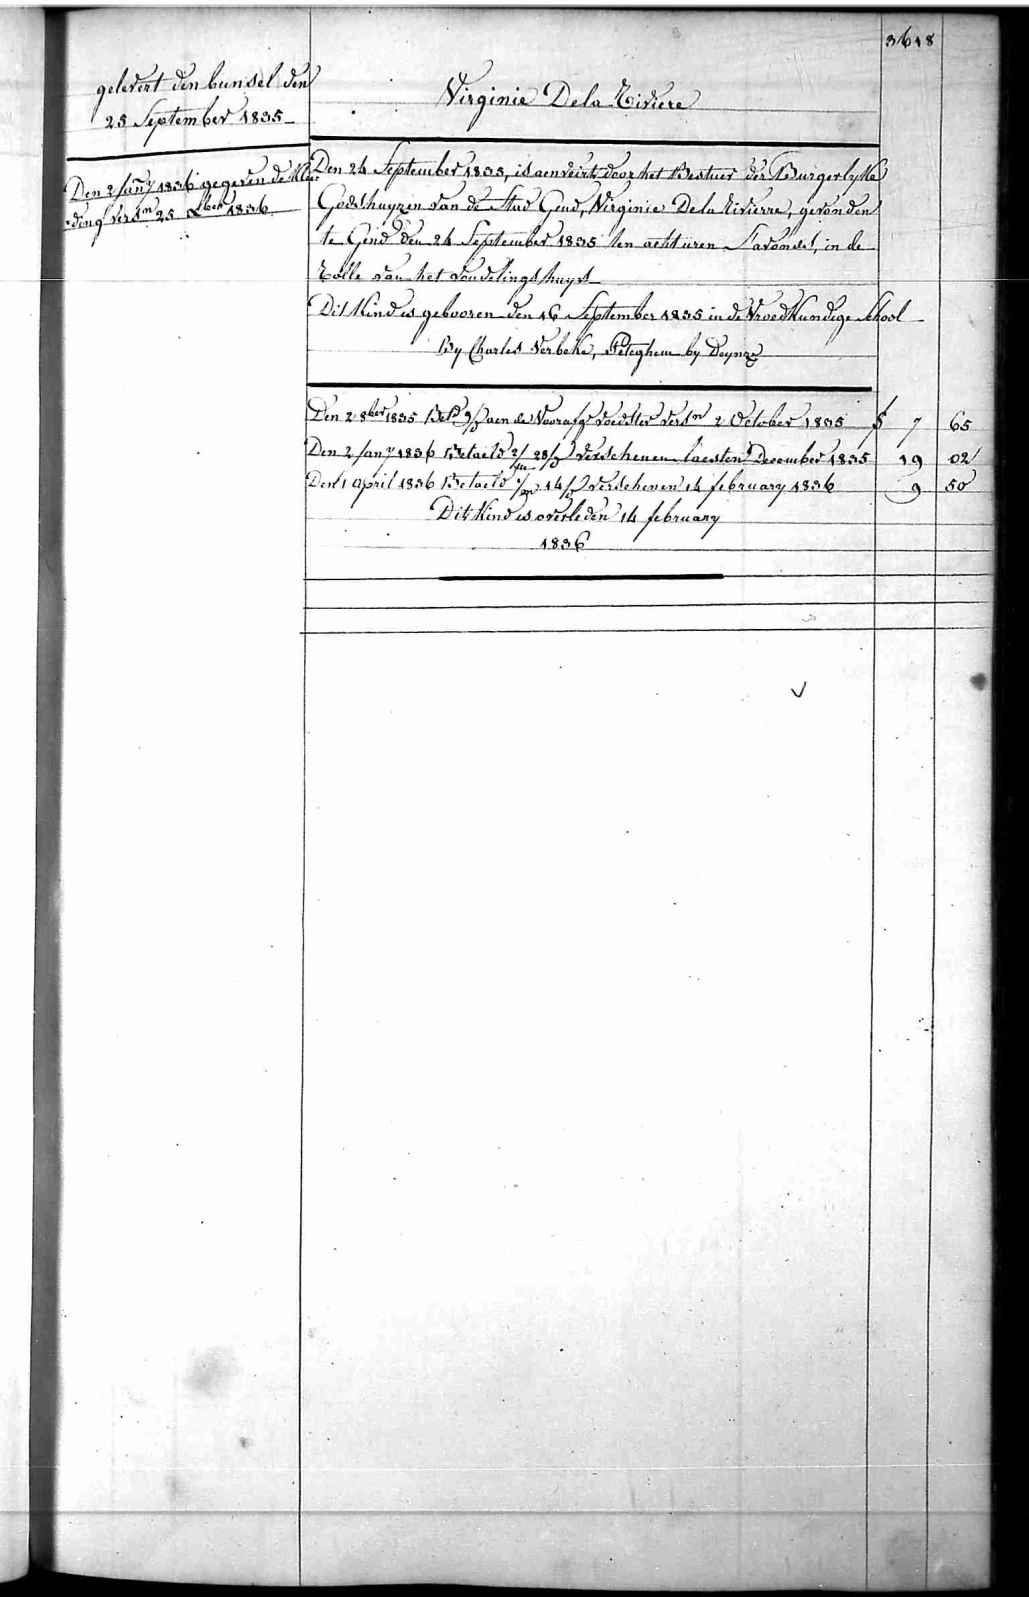 3618
gelevert den bunsel den
25 September 1835
Den 2 Jany 1836 gegeven de Klee
ding versn 25 xber 1836
Virginie De la Riviere
Den 24 September 1835, is aenveirt door het Bestuer der Burgerlyke
Godshuyzen van de Stad Gend, Virginie De la Rivierre, gevonden
te Gend den 24 September 1835 ten acht uren S'avonds, in de
Rolle van het vondelingshuys
Dit Kind is gebooren den 16 September 1835 in de Vroedkundige School
By Charles Verbeke, Peteghem by Deynze
Den 2 8ber 1835 Betd 9/d aen de Voorafge voedster versn 2 October 1835 f 7 65
Den 2 Jany 1836 Betaeld 2/m 28/d verschenen laesten December 1835 19 02
Den 1 april 1836 Betaeld 1/m 14/d verschenen 14 february 1836 9 50
Dit Kind is overleden 14 february
1836